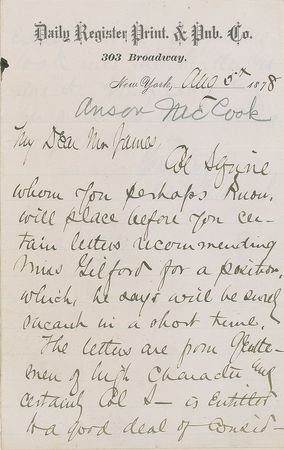 Daily Register Print. & Pub. Co.
303 Broadway.
New York, Aug 5th 1878
Anson McCook
My Dear Mr James,
Col Squire
whom you perhaps know,
will place before you cer-
tain letters recommending
Miss Gilford for a position,
which, he says will be surely
vacant in a short time.
The letters are from Gentle-
men of high character and
certainly Col S— is entitled
to a good deal of consid-